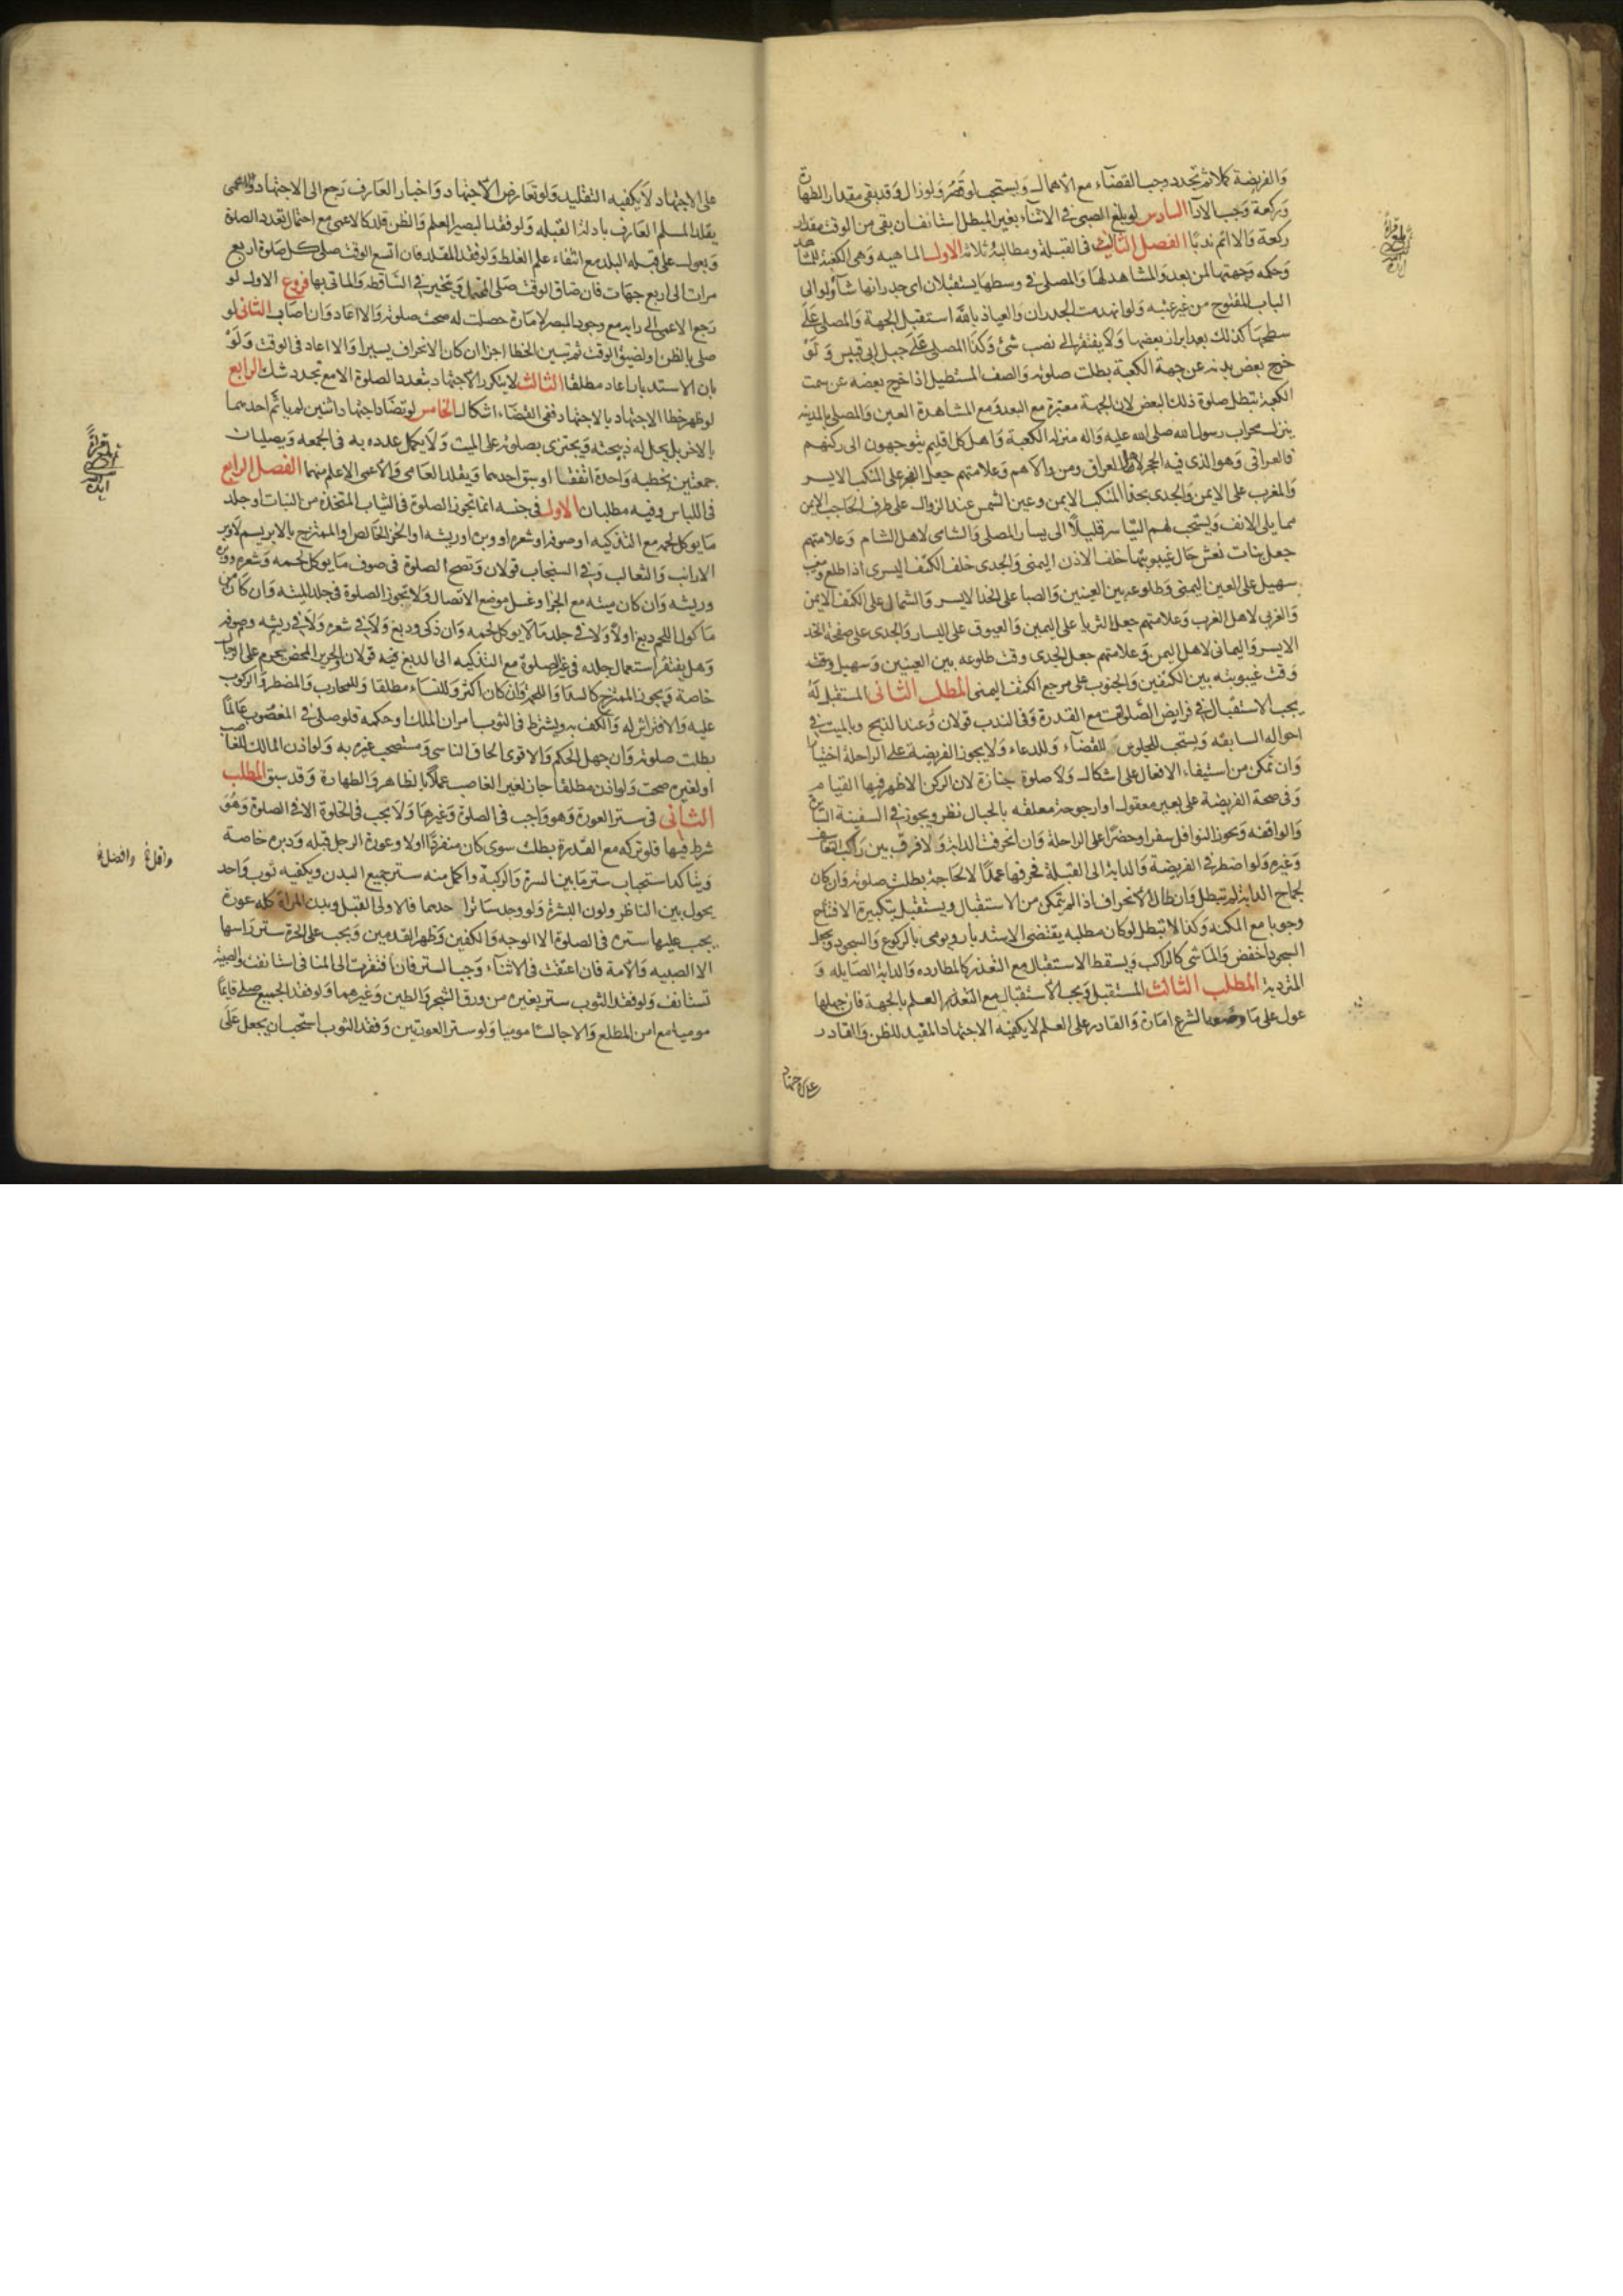 والفريضة كملا ثم تجدد وجب القضاء مع الاهمال ويستحب لو قصر ولو زال وقد بقى مقدار الطهارة
وركعة وجب الاداء السادس لو بلغ الصبى فى الاثناء بغير المبطل استانف ان بقى من الوقت مقدار
ركعة والا اتم ندبا الفصل الثالث فى القبلة ومطالبه ثلاثة الاول الماهيه وهى الكعبة للمشاهد
وحكمه وجهتها لمن بعد والمشاهد لها والمصلى فى وسطها يستقبلان اى جدرانها شآء ولو الى
الباب المفتوح من غير عتبه ولو انهدمت الجدران والعياذ بالله استقبل الجهة والمصلى على
سطحها كذلك بعد ابراز بعضها ولا يفتقر الى نصب شئ وكذا المصلى على جبل ابى قبيس ولو
خرج بعض بدنه عن جهة الكعبة بطلت صلوته والصف المستطيل اذا خرج بعضه عن سمت
الكعبة تبطل صلوة ذلك البعض لان الجهة معتبرة مع البعد ومع المشاهدة العين والمصلى بالمدينه
ينزل محراب رسول الله صلى الله عليه واله منزلة الكعبة واهل كل اقليم يتوجهون الى ركنهم
فالعراقى وهو الذى فيه الحجر لاهل العراق ومن والاهم وعلامتهم جعل الفجر على المنكب الايسر
والمغرب على الايمن والجدى بحذا المنكب الايمن وعين الشمس عند الزوال على طرف الحاجب الايمن
مما يلى الانف ويستحب لهم التياسر قليلا الى يسار المصلى والشامى لاهل الشام وعلامتهم
جعل بنات نعش حال غيبوبتها خلف الاذن اليمنى والجدى خلف الكتف اليسرى اذا طلع ومغيب
سهيل على العين اليمنى وطلوعه بين العينين والصبا على الخد الايسر والشمال على الكتف الايمن
والغربى لاهل الغرب وعلامتهم جعل الثريا على اليمين والعيوق على اليسار والجدى على صفحة الخد
الايسر واليمانى لاهل اليمن وعلامتهم جعل الجدى وقت طلوعه بين العينين وسهيل وقت
وقت غيبوبته بين الكتفين والجنوب على مرجع الكتف اليمنى المطلب الثانى المستقبل له
يجب الاستقبال فى فرايض الصلوات مع القدرة وفى الندب قولان وعند الذبح وبالميت فى
احواله السابقه ويستحب للجلوس للقضآء وللدعاء ولا يجوز الفريضة على الراحلة اختيارا
وان تمكن من استيفاء الافعال على اشكال ولا صلوة جنازة لان الركن الاظهر فيها القيام
وفى صحة الفريضة على بعير معقول او ارجوحة معلقه بالحبال نظر ويجوز فى السفينة السائرة
والواقفه ويجوز النوافل سفرا وحضرا على الراحلة وان انحرفت الدابة ولا فرق بين راكب التعاسيف
وغيره ولو اضطر فى الفريضة والدابة الى القبلة فحرفها عمدا لا لحاجة بطلت صلوته وان كان
لجماح الدابة لم تبطل وان طال الانحراف اذا لم يتمكن من الاستقبال ويستقبل بتكبيرة الافتتاح
وجوبا مع المكنه وكذا لا تبطل لو كان مطلبه يقتضى الاستدبار ويومى بالركوع والسجود ويجعل
السجود اخفض والماشى كالراكب ويسقط الاستقبال مع التعذر كالمطارده والدابة الصايله و
المتردية المطلب الثالث المستقبل ويجب الاستقبال مع التعذر العلم بالجهة فان جهلها
عول على ما وضعه الشرع امارة والقادر على العلم لا يكفيه الاجتهاد المفيد للظن والقادر
على الاجتهاد
على الاجتهاد لا يكفيه التقليد ولو تعارض الاجتهاد واخبار العارف رجع الى الاجتهاد والاعمى
يقلد المسلم العارف بادلة القبله ولو فقد البصير العلم والظن قلد كالاعمى مع احتمال تعدد الصلاة
ويعول على قبلة البلد مع انتفاء علم الغلط ولو فقد المقلد فان اتسع الوقت صلى كل صلوة اربع
مرات الى اربع جهات فان ضاق الوقت صلى المحتمل ويتخير فى الساقطه والماتى بها فروع الاول لو
رجع الاعمى الى رايه مع وجود المبصر لامارة حصلت له صحت صلوته والا اعاد وان اصاب الثانى لو
صلى بالظن او لضيق الوقت ثم تبين الخطا اجزا ان كان الانحراف يسيرا والا اعاد فى الوقت ولو
بان الاستدبار اعاد مطلقا الثالث لا يتكرر الاجتهاد بتعدد الصلوة الا مع تجدد شك الرابع
لو ظهر خطا الاجتهاد بالاجتهاد ففى القضاء اشكال الخامس لو تضاد اجتهاد اثنين لم ياتم احدهما
بالاخر بل يحل له ذبيحته ويجتزى بصلوته على الميت ولا يكمل عدده به فى الجمعه ويصليان
جمعتين بخطبه واحدة اتفقتا او سبق احدهما ويقلد العامى والاعمى الاعلم منهما الفصل الرابع
فى اللباس وفيه مطلبان الاول فى جنسه انما تجوز الصلوة فى الثياب المتخذة من النبات او جلد
ما يوكل لحمه مع التذكيه او صوفه او شعره او وبره او ريشه او الخز الخالص او الممتزج بالابريسم لا وبر
الارانب والثعالب وفى السنجاب قولان وتصح الصلوة فى صوف ما يوكل لحمه وشعره ووبره
وريشه وان كان ميتة مع الجز او غسل موضع الاتصال ولا تجوز الصلوة فى جلد الميتة وان كان من
ماكول اللحم دبغ اولا ولا فى جلد ما لا يوكل لحمه وان ذكى ودبغ ولا فى شعره ولا فى ريشه وصوفه
وهل يفتقر استعمال جلده فى غير الصلوة مع التذكيه الى الدبغ فيه قولان والحرير المحض يحرم على الرجال
خاصة ويجوز الممتزج كالسدا واللحمة وان كان اكثر وللنساء مطلقا وللمحارب والمضطر والركوب
عليه والافتراش له والكف به ويشترط فى الثوب امران الملك او حكمه فلو صلى فى المغصوب عالما
بطلت صلوته وان جهل الحكم والاقوى الحاق الناسى ومستصحب غيره به ولو اذن المالك للغاصب
او لغيره صحت ولو اذن مطلقا جاز لغير الغاصب عملا بالظاهر والطهارة وقد سبق المطلب
الثانى فى ستر العورة وهو واجب فى الصلاة وغيرها ولا يجب فى الخلوة الا فى الصلوة وهو
شرط فيها فلو تركه مع القدرة بطلت سوى كان منفردا اولا وعورة الرجل قبله ودبره خاصة
ويتاكد استحباب ستر ما بين السرة والركبة واكمل منه ستر جميع البدن ويكفيه ثوب واحد
يحول بين الناظر ولون البشرة ولو وجد ساتر احدهما فالاولى القبل وبدن المراة كله عورة
يجب عليها ستره فى الصلوة الا الوجه والكفين وظهر القدمين ويجب على الحرة ستر راسها
الا الصبيه والامة فان اعتقت فى الاثنآء وجب الستر فان افتقرت الى المنافى استانفت والصبية
تستانف ولو فقد الثوب ستر بغيره من ورق الشجر والطين وغيرهما ولو فقد الجميع صلى قايما
موميا مع امن المطلع والا جالسا موميا ولو ستر العورتين وفقد الثوب استحب ان يجعل على